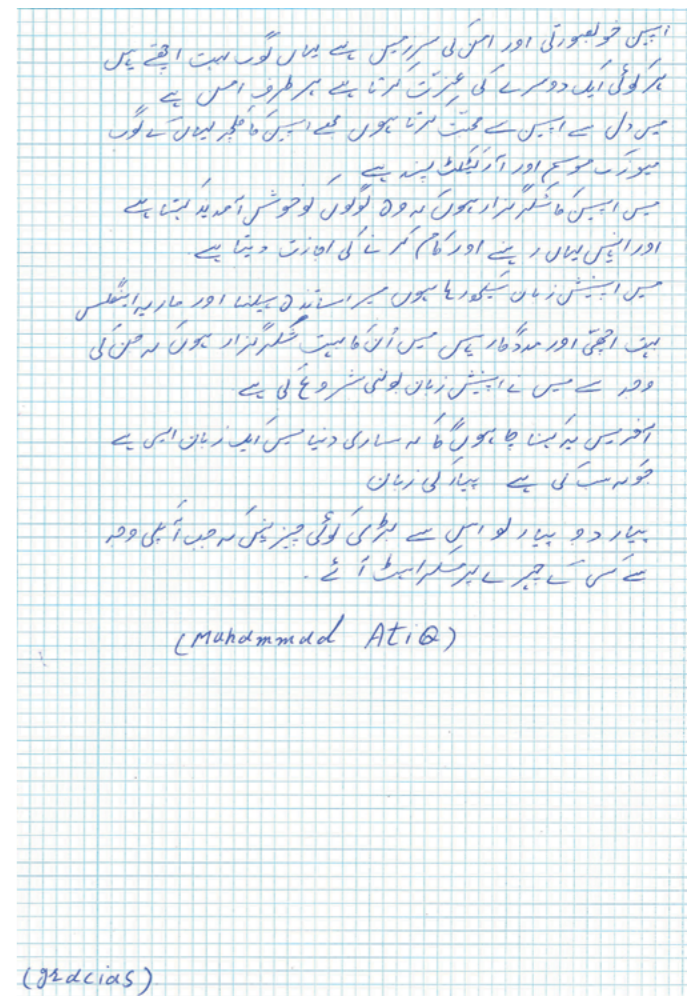 اپین خوبصورتی اور امن کی سرزمیں ہے یہاں لوگ بہت اچھے ہیں
ہر کوئی ایک دوسرے کی عزت کرتا ہے ہر طرف امن ہے
میں دل سے اسپین سے محبت کرتا ہوں مجھے اسپین کا کلچر یہاں کے لوگ
میوزک موسم اور آرکیٹکٹ پسند ہے
میں اسپین کا شکر گزار ہوں کہ وہ لوگوں کو خوش آمدید کہتا ہے
اور انہیں یہاں رہنے اور کام کرنے کی اجازت دیتا ہے
میں اسپنیش زبان سیکھ رہا ہوں میر اساتذہ بیلنا اور ماریہ اینگلس
بہت اچھی اور مددگار ہیں میں اُن کا بہت شکر گزار ہوں کہ جن کی
وجہ سے میں نے اسپنیش زبان بولنی شروع کی ہے
آخر میں یہ کہنا چاہوں گا کہ ساری دنیا میں ایک زبان ایسی ہے
جو کہ سب کی ہے پیار کی زبان
پیار دو پیار لو اس سے بڑی کوئی چیز نہیں کہ جب آپکی وجہ
سے کسی کے چہرے پر مسکراہٹ آئے .
(Muhammad AtiQ)
(gracias)